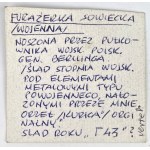 FURAŻERKA SOWIECKA
/WOJENNA/
NOSZONA PRZEZ PUŁKO-
WNIKA WOJSK POLSK.
GEN. BERLINGA.
/ŚLAD STOPNIA WOJSK.
POD ELEMENTAMI
METALOWYMI TYPU
POWOJENNEGO, NAŁO-
ŻONYMI PRZEZE MNIE.
ORZEŁ /KURICA/ ORGI
NALNY
ŚLAD ROKU „Г43"?